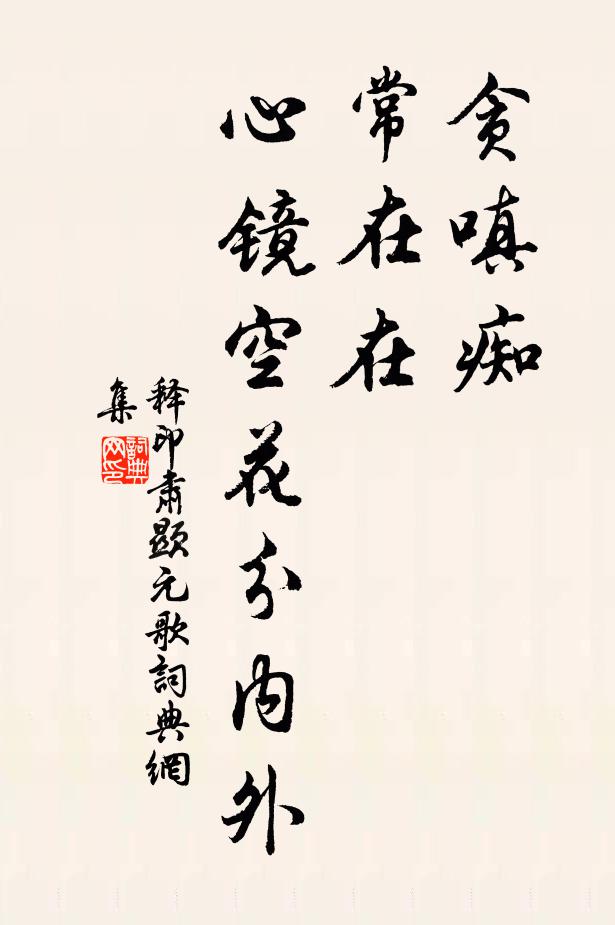 贪嗔痴
常在在
心镜空花分内外
释印肃顕元歌詞典網
集
詞典网印